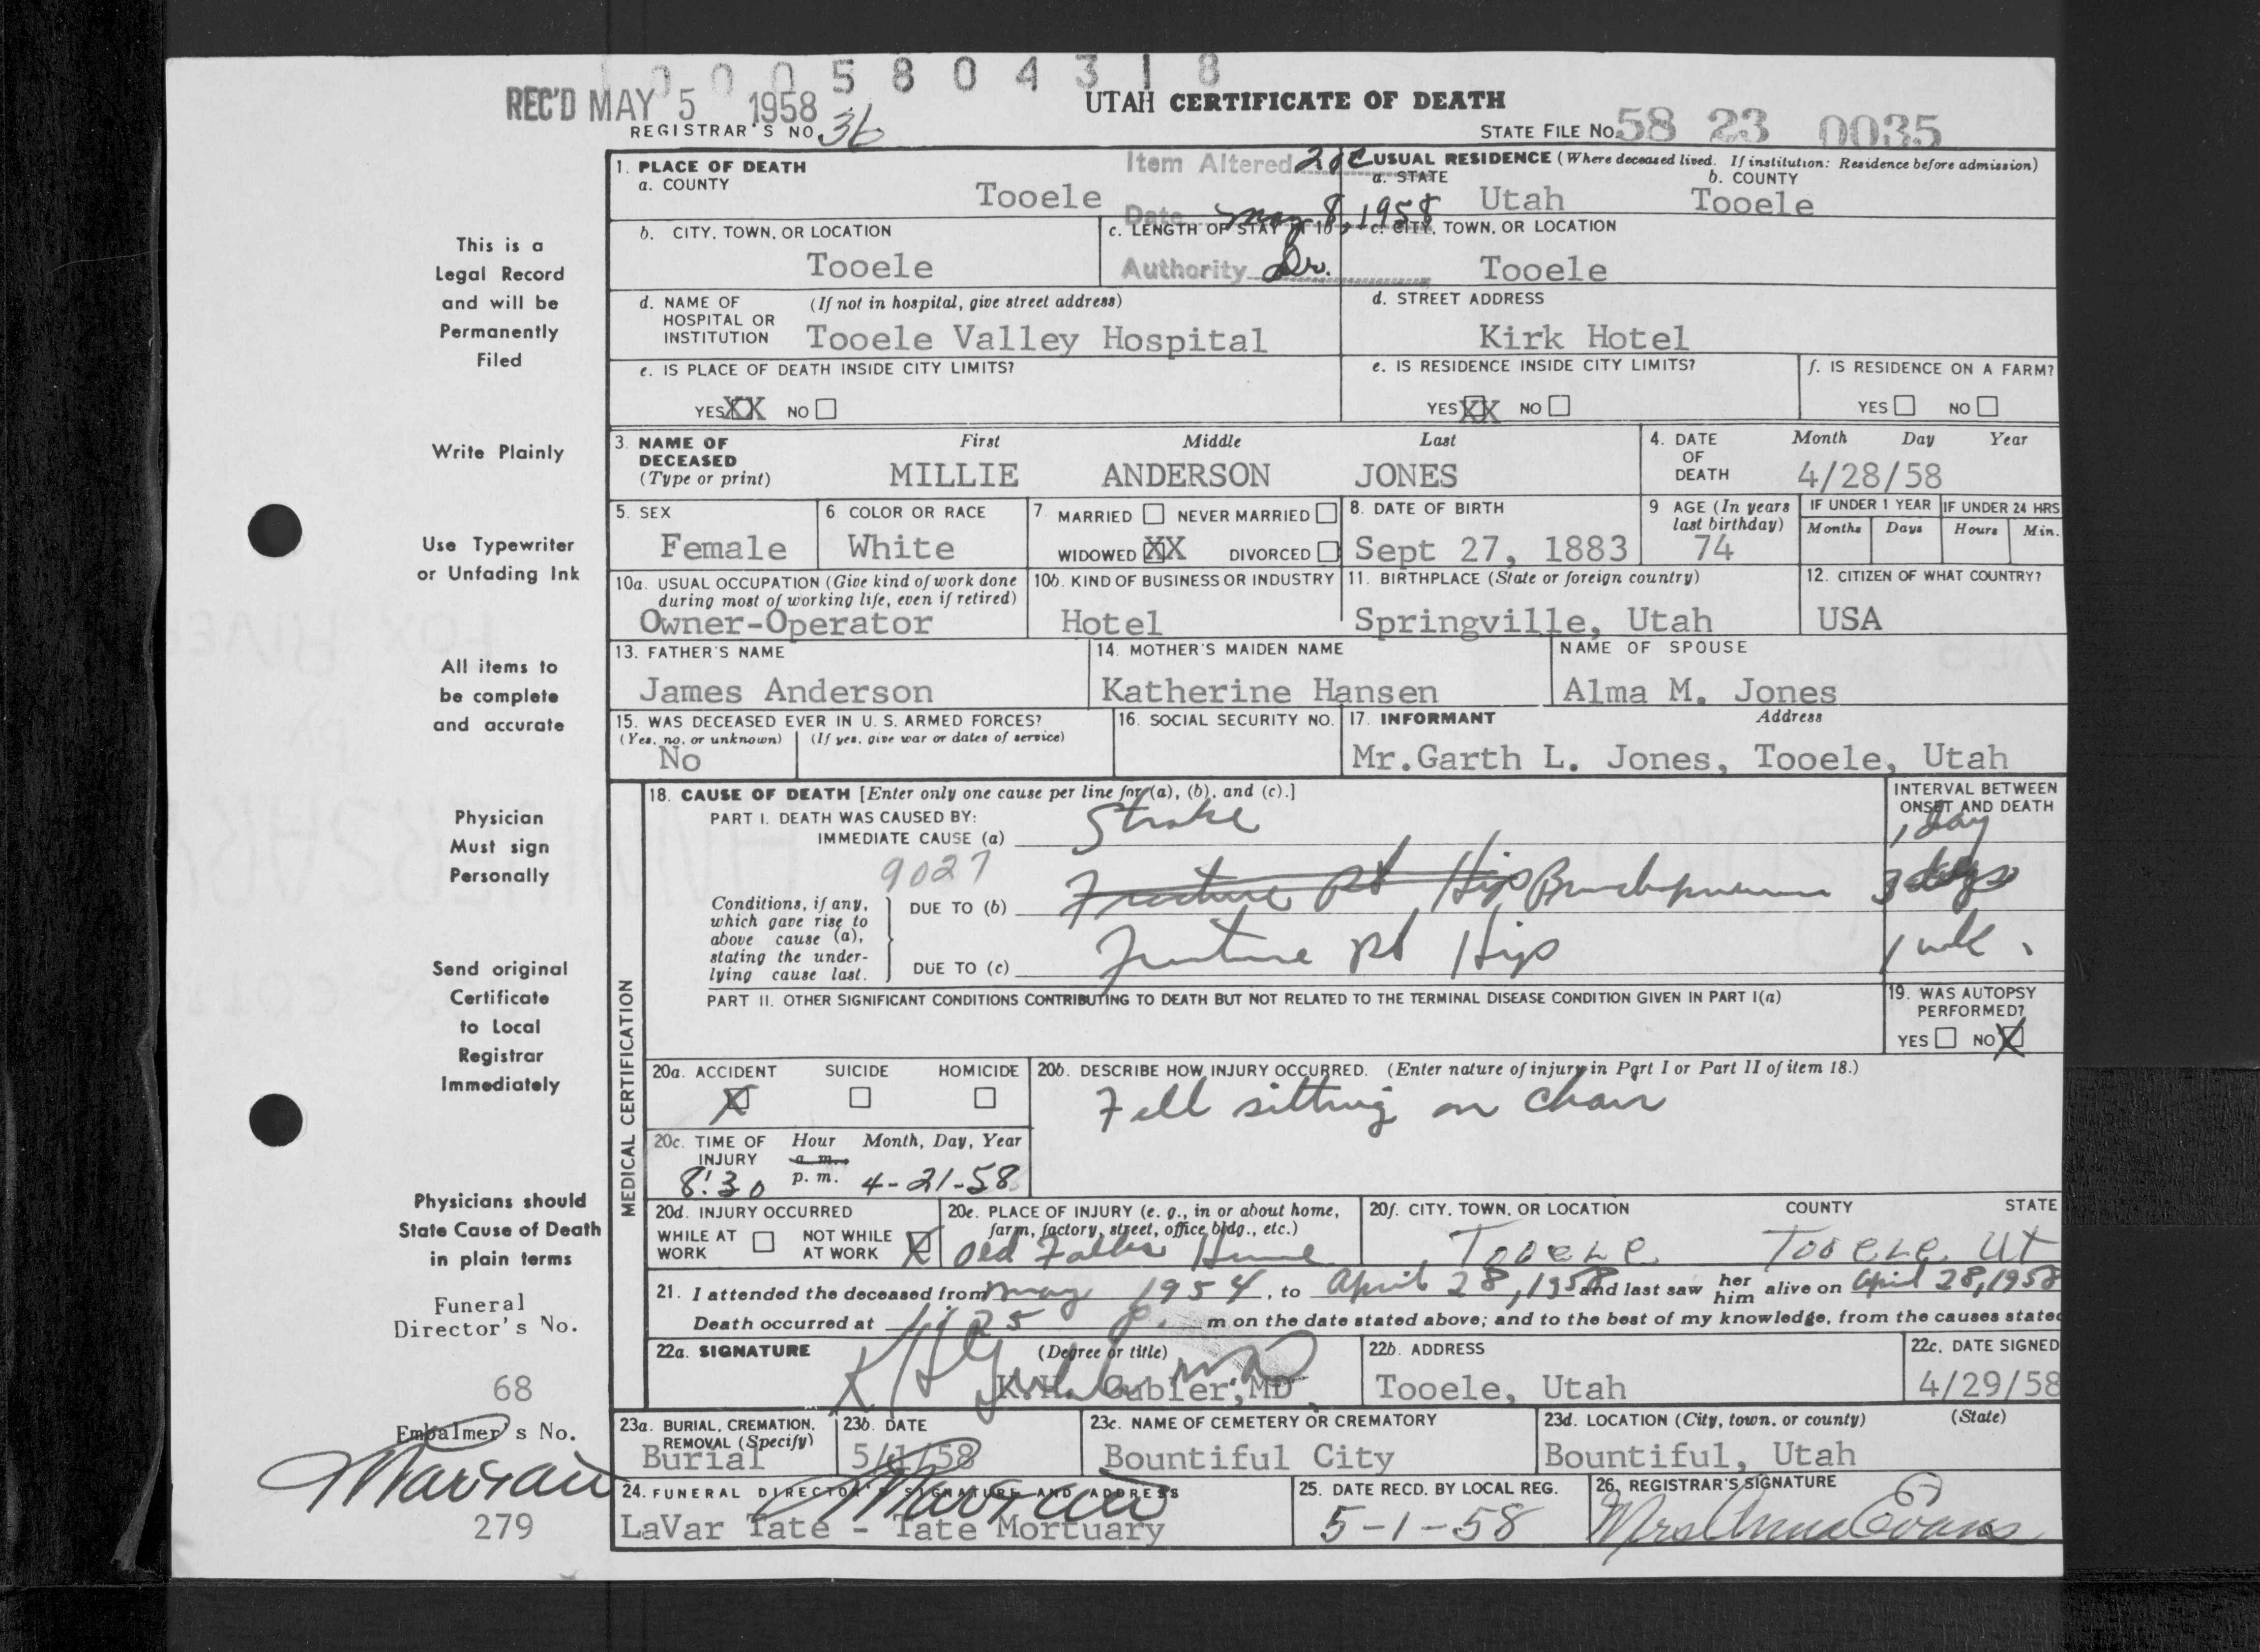 0005804318
REC'D MAY 5 1958
UTAH CERTIFICATE OF DEATH
REGISTRAR'S NO. 36
STATE FILE NO. 58 23 0035
This is a
Legal Record
and will be
Permanently
Filed
Write Plainly
Use Typewriter
or Unfading Ink
All items to
be complete
and accurate
Physician
Must sign
Personally
Send original
Certificate
to Local
Registrar
Immediately
Physicians should
State Cause of Death
in plain terms
Funeral
Director's No.
68
Embalmer's No.
279
1. PLACE OF DEATH
a. COUNTY
Tooele
Item Altered 20c
Date May 8, 1958
Authority Dr.
USUAL RESIDENCE (Where deceased lived. If institution: Residence before admission)
a. STATE
Utah
b. COUNTY
Tooele
b. CITY, TOWN, OR LOCATION
Tooele
c. LENGTH OF STAY IN 1b
c. CITY, TOWN, OR LOCATION
Tooele
d. NAME OF HOSPITAL OR INSTITUTION
(If not in hospital, give street address)
Tooele Valley Hospital
d. STREET ADDRESS
Kirk Hotel
e. IS PLACE OF DEATH INSIDE CITY LIMITS?
YES XX NO
e. IS RESIDENCE INSIDE CITY LIMITS?
YES XX NO
f. IS RESIDENCE ON A FARM?
YES NO
3. NAME OF DECEASED
(Type or print)
First Middle Last
MILLIE ANDERSON JONES
4. DATE OF DEATH
Month Day Year
4/28/58
5. SEX
Female
6. COLOR OR RACE
White
7. MARRIED NEVER MARRIED
WIDOWED XX DIVORCED
8. DATE OF BIRTH
Sept 27, 1883
9 AGE (In years last birthday)
74
IF UNDER 1 YEAR
Months Days
IF UNDER 24 HRS
Hours Min.
10a. USUAL OCCUPATION (Give kind of work done
during most of working life, even if retired)
Owner-Operator
10b. KIND OF BUSINESS OR INDUSTRY
Hotel
11. BIRTHPLACE (State or foreign country)
Springville, Utah
12. CITIZEN OF WHAT COUNTRY?
USA
13. FATHER'S NAME
James Anderson
14. MOTHER'S MAIDEN NAME
Katherine Hansen
NAME OF SPOUSE
Alma M. Jones
15. WAS DECEASED EVER IN U. S. ARMED FORCES?
(Yes, no, or unknown) (If yes, give war or dates of service)
No
16. SOCIAL SECURITY NO.
17. INFORMANT Address
Mr.Garth L. Jones, Tooele, Utah
MEDICAL CERTIFICATION
18. CAUSE OF DEATH [Enter only one cause per line for (a), (b), and (c).]
INTERVAL BETWEEN ONSET AND DEATH
PART I. DEATH WAS CAUSED BY:
IMMEDIATE CAUSE (a) Stroke 1 day
9027
Conditions, if any,
which gave rise to
above cause (a),
stating the under-
lying cause last.
DUE TO (b) Fracture Rt Hip Bronchopneumonia 3 days
DUE TO (c) Fracture Rt Hip 1 wk.
PART II. OTHER SIGNIFICANT CONDITIONS CONTRIBUTING TO DEATH BUT NOT RELATED TO THE TERMINAL DISEASE CONDITION GIVEN IN PART I(a)
19. WAS AUTOPSY PERFORMED?
YES NO X
20a. ACCIDENT SUICIDE HOMICIDE
X
20b. DESCRIBE HOW INJURY OCCURRED. (Enter nature of injury in Part I or Part II of item 18.)
Fell sitting on chair
20c. TIME OF INJURY
Hour Month, Day, Year
a. m.
8:30 p. m. 4-21-58
20d. INJURY OCCURRED
WHILE AT WORK NOT WHILE AT WORK X
20e. PLACE OF INJURY (e. g., in or about home,
farm, factory, street, office bldg., etc.)
Old Folks Home
20f. CITY, TOWN, OR LOCATION COUNTY STATE
Tooele Tooele Ut
21. I attended the deceased from May 1954, to April 28, 1958 and last saw her him alive on April 28, 1958
Death occurred at 11:25 p. m on the date stated above; and to the best of my knowledge, from the causes stated
22a. SIGNATURE (Degree or title)
K H Gubler MD
K.H. Gubler, MD
22b. ADDRESS
Tooele, Utah
22c. DATE SIGNED
4/29/58
23a. BURIAL, CREMATION,
REMOVAL (Specify)
Burial
23b. DATE
5/1/58
23c. NAME OF CEMETERY OR CREMATORY
Bountiful City
23d. LOCATION (City, town, or county) (State)
Bountiful, Utah
24. FUNERAL DIRECTOR'S SIGNATURE AND ADDRESS
LaVar Tate - Tate Mortuary
25. DATE RECD. BY LOCAL REG.
5-1-58
26. REGISTRAR'S SIGNATURE
Mrs Anna Evans